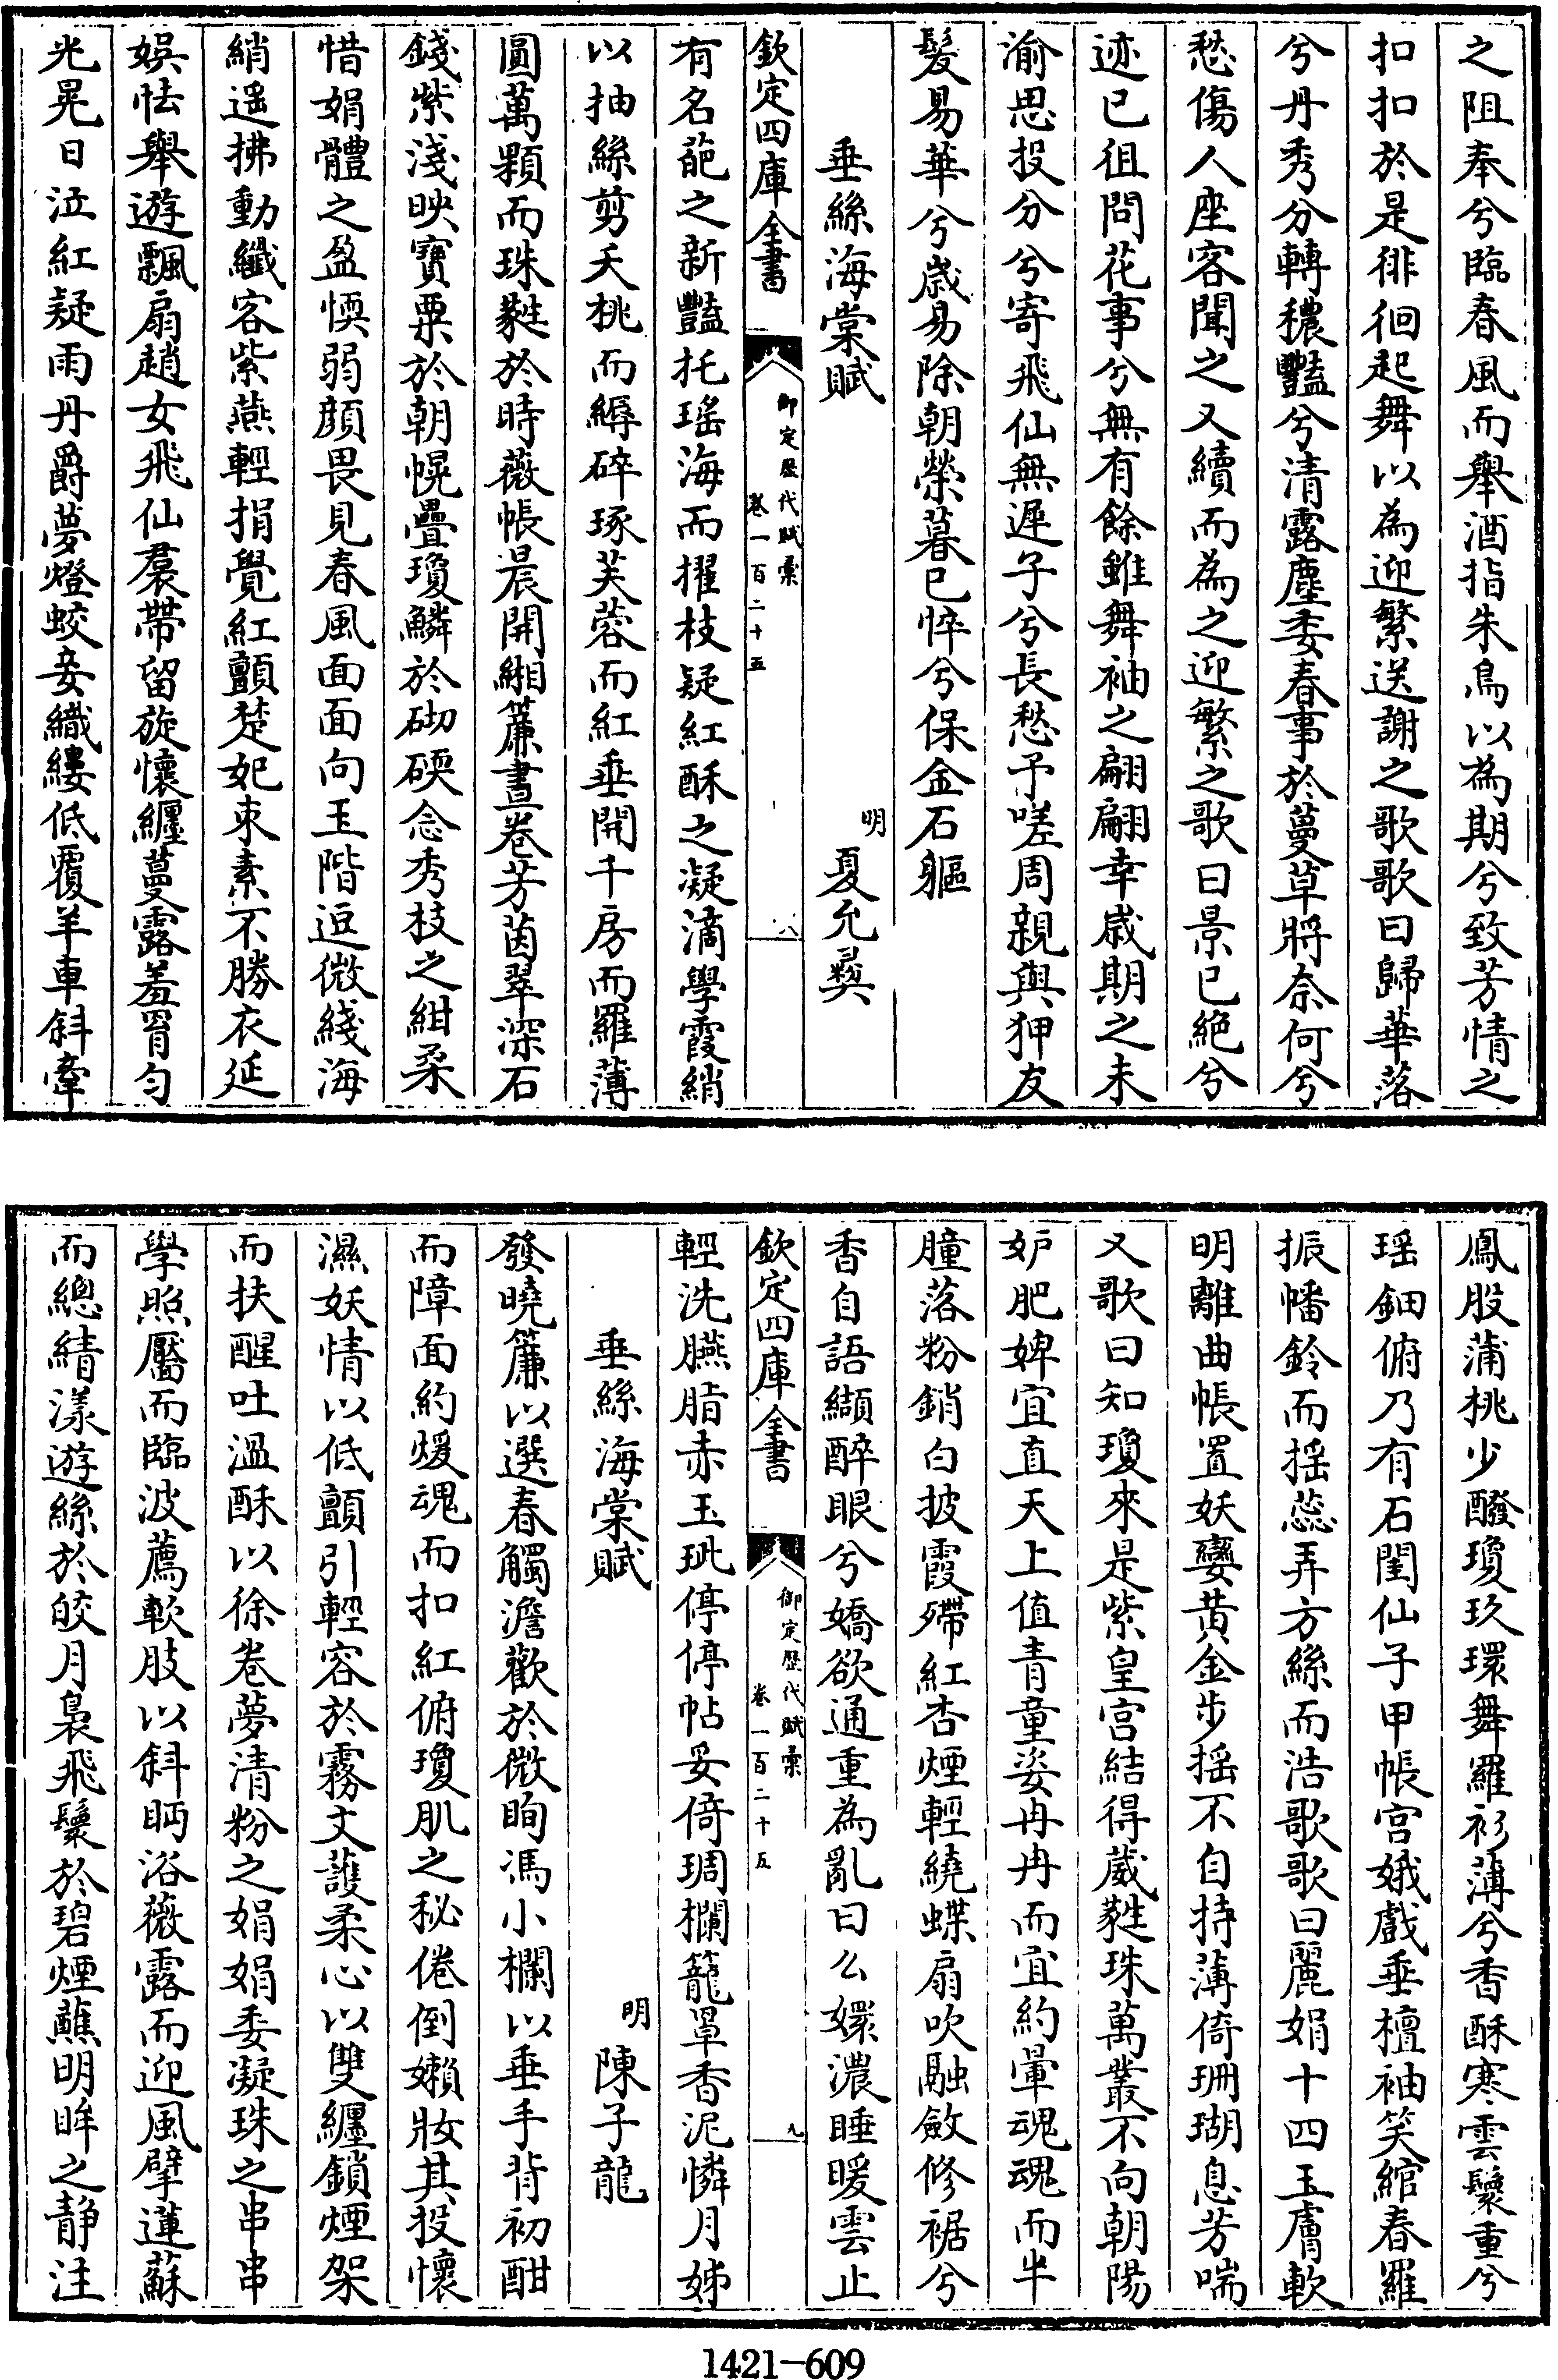 之阻奉兮臨春風而舉酒指朱鳥以為期兮致芳情之
扣扣於是徘徊起舞以為迎繁送謝之歌歌曰歸華落
兮丹秀分轉穠豔兮清露塵委春事於蔓草將奈何兮
愁傷人座客聞之又續而為之迎繁之歌曰景已絶兮
迹已徂問花事兮無有餘雖舞袖之翩翩幸歲期之未
渝思投分兮寄飛仙無遲子兮長愁予嗟周親與狎友
髮易華兮歲易除朝榮暮已悴兮保金石軀
垂絲海棠賦
明
夏允彝
欽定四庫全書
御定歷代賦彙
卷一百二十五
八
有名葩之新豔托瑤海而擢枝疑紅酥之凝滴學霞綃
以抽絲剪夭桃而縟碎琢芙蓉而紅垂開千房而羅薄
圓萬顆而珠蕤於時薇帳晨開緗簾晝卷芳茵翠深石
錢紫淺映寶粟於朝幌疊瓊鱗於砌碝念秀枝之紺柔
惜娟體之盈愞弱顔畏見春風面面向玉階逗微綫海
綃遥拂動纖客紫燕輕捐覺紅顫楚妃束素不勝衣延
娛怯舉遊飄扇趙女飛仙羣帶留旋懷纏蔓露羞胥勻
光晃日泣紅疑雨丹爵夢燈蛟妾織縷低覆羊車斜牽
鳳股蒲桃少醱瓊玖環舞羅衫薄兮香酥寒雲鬟重兮
瑶鈿俯乃有石閨仙子甲帳宫娥戲垂檀袖笑綰春羅
振幡鈴而揺蕊弄方絲而浩歌歌曰麗娟十四玉膚軟
明離曲帳置妖孌黄金步揺不自持薄倚珊瑚息芳喘
又歌曰知瓊來是紫皇宮結得葳蕤珠萬叢不向朝陽
妒肥婢宜直天上值青童姿冉冉而宜約暈魂魂而半
朣落粉銷白披霞殢紅杏煙輕繞蝶扇吹融斂修裾兮
香自語纈醉眼兮嬌欲通重為亂曰么嬛濃睡暖雲止
欽定四庫全書
御定歷代賦彙
卷一百二十五
九
輕洗臙脂赤玉玼停停帖妥倚琱欄籠罩香泥憐月姊
垂絲海棠賦
明
陳子龍
發曉簾以選春觸澹歡於微眴馮小欄以垂手背初酣
而障面約煖魂而扣紅俯瓊肌之秘倦倒嬾妝其投懷
濕妖情以低顫引輕容於霧文護柔心以雙纏鎖煙架
而扶醒吐溫酥以徐卷夢清粉之娟娟委凝珠之串串
學照靨而臨波薦軟肢以斜眄浴薇露而迎風擘蓮蘇
而總綪漾遊絲於皎月裊飛鬟於碧煙蘸明眸之静注
1421-609